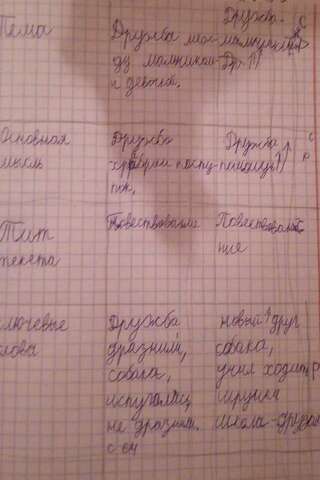 Тема
Дружба меж-
ду мальчиком
и девочкой.
Дружба
Основная
мысль
Дружба
храбрый посту-
пок.
Дружба
Тип
текста
Повествование
Повествова
ние
ключевые
слова
Дружба,
дразнили,
собака,
испугалась,
не дразнили.
новый друг
собака,
учил ходить,
игрушки
школа-друзья